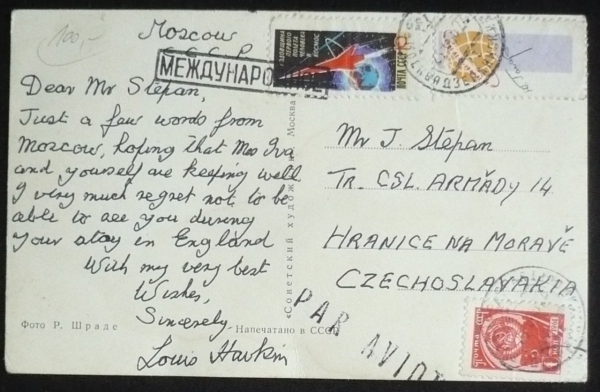 100,-
Moscow
C.C.C.P.
МЕЖДУНАРО
Dear Mr Stepan,
Just a few words from
Moscow, hoping that Mrs Iva
and yourself are keeping well
I very much regret not to be
able to see you during
your stay in England
With my very best
Wishes,
Sincerely
Louis Havkin
Фото Р. Шраде
Напечатано в СССР
«Советский художник» Москва
ПОЧТА СССР
Mr J. Stepan
TR. CSL. ARMÁDY 14
HRANICE NA MORAVĚ
CZECHOSLAVAKIA
PAR AVION